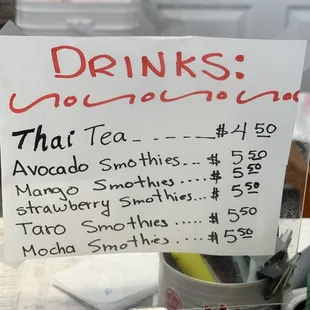 DRINKS:
Thai Tea_ _ _ _ _ _ $ 4 50
Avocado Smothies... $ 5 50
Mango Smothies..... $ 5 50
strawberry Smothies... $ 5 50
Taro Smothies ..... $ 5 50
Mocha Smothies ..... $ 5 50